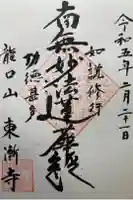 令和五年一月二十一日
如説修行
南無妙法蓮華経
功徳甚多
龍口山 東漸寺